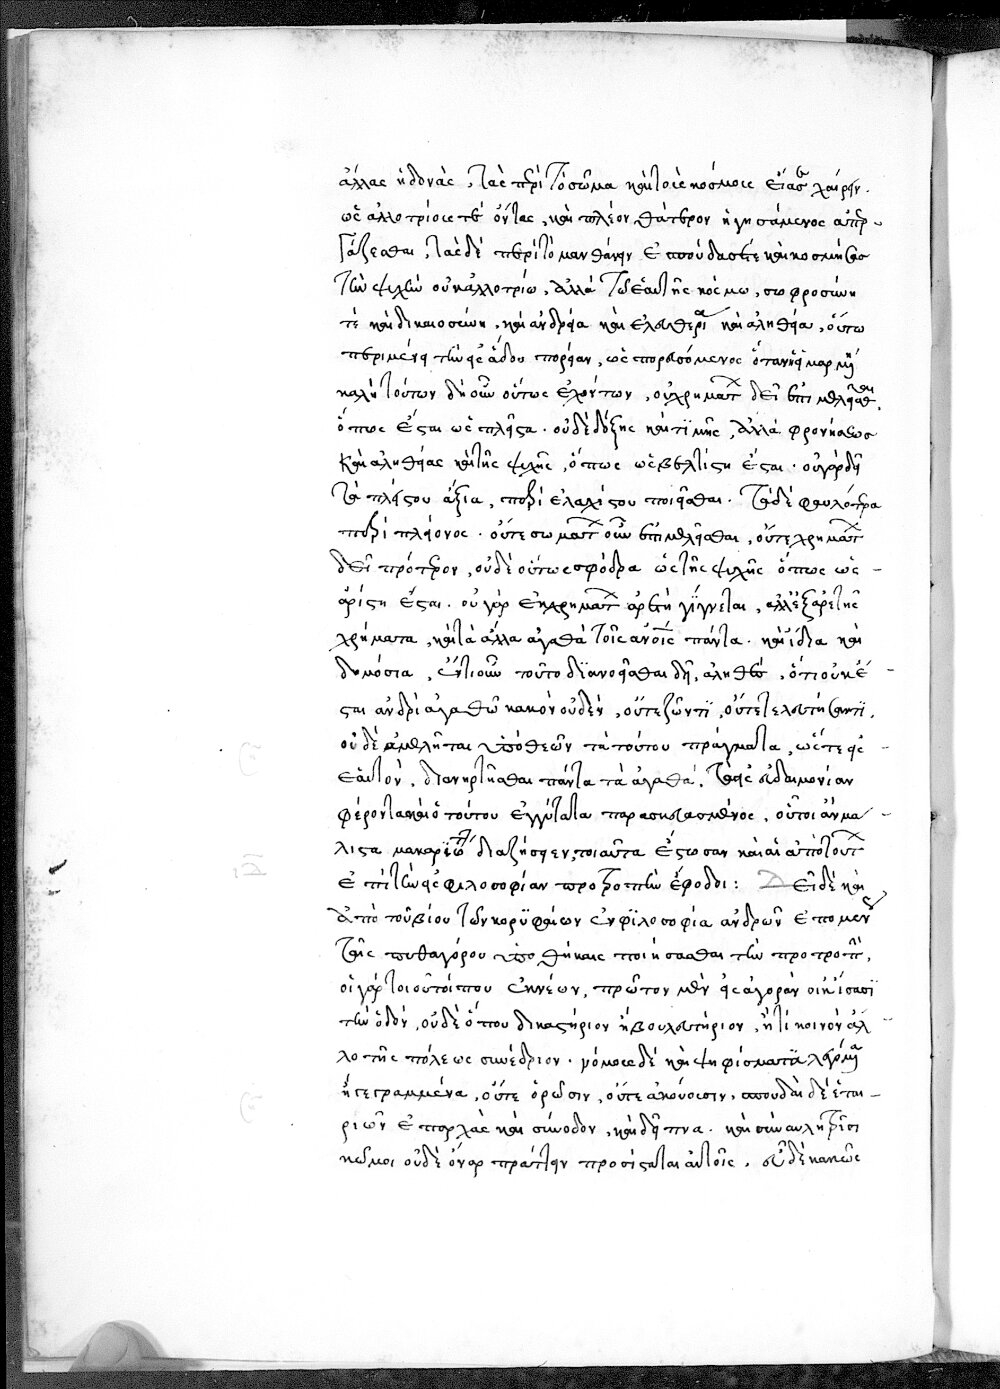 ἄλλας ἡδονὰς, τὰς περὶ τὸ σῶμα καὶ τοὺς κόσμους εἴασε χαίρειν.
ὡς ἀλλοτρίους τὲ ὄντας, καὶ πλέον θάτερον ἡγησάμενος ἀπερ-
γάζεσθαι, τὰς δὲ περὶ τὸ μανθάνειν ἐσπούδασέ τε καὶ κοσμήσας
τὴν ψυχὴν οὐκ ἀλλοτρίω, ἀλλὰ τῶ ἑαυτῆς κόσμω, σωφροσύνη
τὲ καὶ δικαιοσύνη, καὶ ἀνδρεία καὶ ἐλευθερία καὶ ἀληθεία, οὕτω
περιμένει τὴν εἰς ἅδου πορείαν, ὡς πορευσόμενος ὅταν ἡ εἱμαρμένη
καλῆ τούτων δὴ οὖν οὕτως ἐχόντων, οὐ χρημάτων δεῖ ἐπιμελεῖσθαι,
ὅπως ἔσται ὡς πλεῖστα. οὐδὲ δόξης καὶ τιμῆς, ἀλλὰ φρονήσεως
καὶ ἀληθείας καὶ τῆς ψυχῆς, ὅπως ὡς βελτίστη ἔσται. οὐ γὰρ δεῖ
τὰ πλείστου ἄξια, περὶ ἐλαχίστου ποιεῖσθαι. τὰ δὲ φαυλότερα
περὶ πλείονος. οὔτε σωμάτων οὖν ἐπιμελεῖσθαι, οὔτε χρημάτων
δεῖ πρότερον, οὐδὲ οὕτω σφόδρα ὡς τῆς ψυχῆς ὅπως ὡς
ἀρίστη ἔσται. οὐ γὰρ ἐκ χρημάτων ἀρετὴ γίγνεται, ἀλλ' ἐξ ἀρετῆς
χρήματα, καὶ τὰ ἄλλα ἀγαθὰ τοῖς ἀνοις πάντα. καὶ ἰδία καὶ
δημόσια, ἓν τι οὖν τοῦτο διανοεῖσθαι δεῖ, ἀληθὲς, ὅτι οὐκ ἔ-
σται ἀνδρὶ ἀγαθῶ κακὸν οὐδὲν, οὔτε ζῶντι, οὔτε τελευτήσαντι,
οὐδὲ ἀμελεῖται ὑπὸ θεῶν τὰ τούτου πράγματα, ὥστε εἰς
ἑαυτὸν, διανηρτῆσθαι πάντα τὰ ἀγαθὰ, τὰ εἰς εὐδαιμονίαν
φέροντα καὶ ὁ τούτου ἐγγύτατα παρασκευασμένος, οὗτοι ἂν μά-
λιστα μακαρίως διαζήσειεν, τοιαῦτα ἔστωσαν καὶ αἱ ἀπὸ τούτων
ἐπὶ τὴν εἰς φιλοσοφίαν προτροπὴν ἔφοδοι: Εἰ δὲ καὶ
ἀπὸ τοῦ βίου τῶν κορυφαίων ἐν φιλοσοφία ἀνδρῶν ἑπομένους
ταῖς πυθαγόρου ὑποθήκαις ποιήσασθαι τὴν προτροπὴν,
οἱ γάρ τοι οὗτοί που ἐκ νέων, πρῶτον μὲν εἰς ἀγορὰν οὐκ ἴσασι
τὴν ὁδὸν, οὐδὲ ὅπου δικαστήριον ἢ βουλευτήριον, ἤ τι κοινὸν ἄλ-
λο τῆς πόλεως συνέδριον. νόμους δὲ καὶ ψηφίσματα λεγόμενα
ἢ γεγραμμένα, οὔτε ὁρῶσιν, οὔτε ἀκούουσιν. σπουδαὶ δὲ ἑται-
ριῶν ἐπ' ἀρχὰς καὶ σύνοδοι, καὶ δεῖπνα. καὶ σὺν αὐλητρίσι
κῶμοι οὐδὲ ὄναρ πράττειν προσίσταται αὐτοῖς. εὖ δὲ ἢ κακῶς